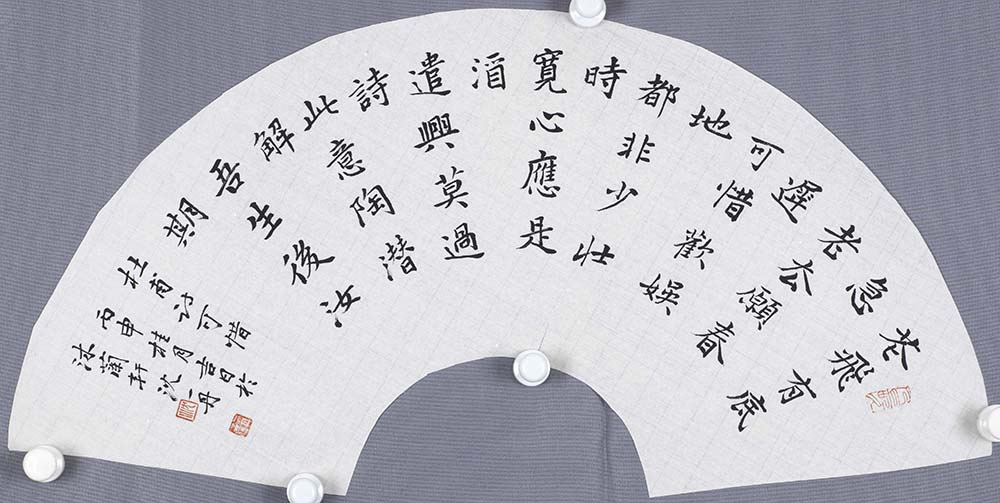 花飛有底
急
老去願春
遲
可惜歡娛
地
都非少壯
時
寬心應是
酒
遣興莫過
詩
此意陶潜
解
吾生後汝
期
杜甫诗可惜
丙申桂月吉日於
沐蘭軒沈一丹